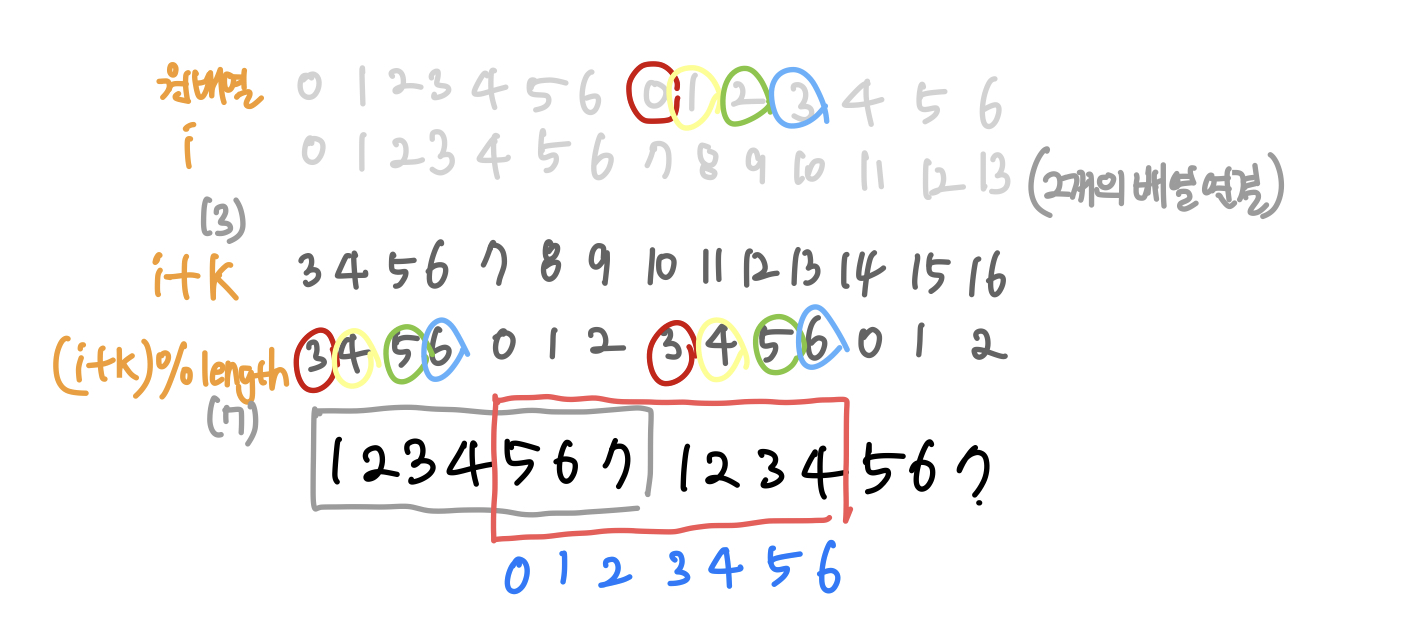 원배열 0 1 2 3 4 5 6 0 1 2 3 4 5 6
i 0 1 2 3 4 5 6 7 8 9 10 11 12 13 (2개의 배열 연결)
(3)
i+k 3 4 5 6 7 8 9 10 11 12 13 14 15 16
(i+k)% length 3 4 5 6 0 1 2 3 4 5 6 0 1 2
(7)
1 2 3 4 5 6 7 1 2 3 4 5 6 7
0 1 2 3 4 5 6